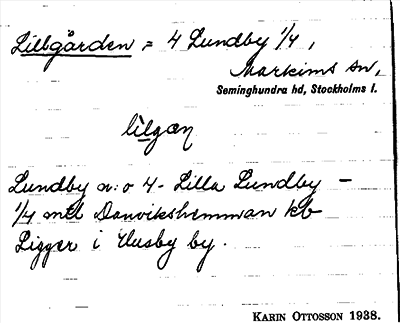 Lillgården = 4 Lundby 1/4,
Markims sn,
Seminghundra hd, Stockholms l.
lilgạn
Lundby n:o 4 - Lilla Lundby -
1/4 mtl Danvikshemman kb
Ligger i Husby by.
KARIN OTTOSSON 1938.